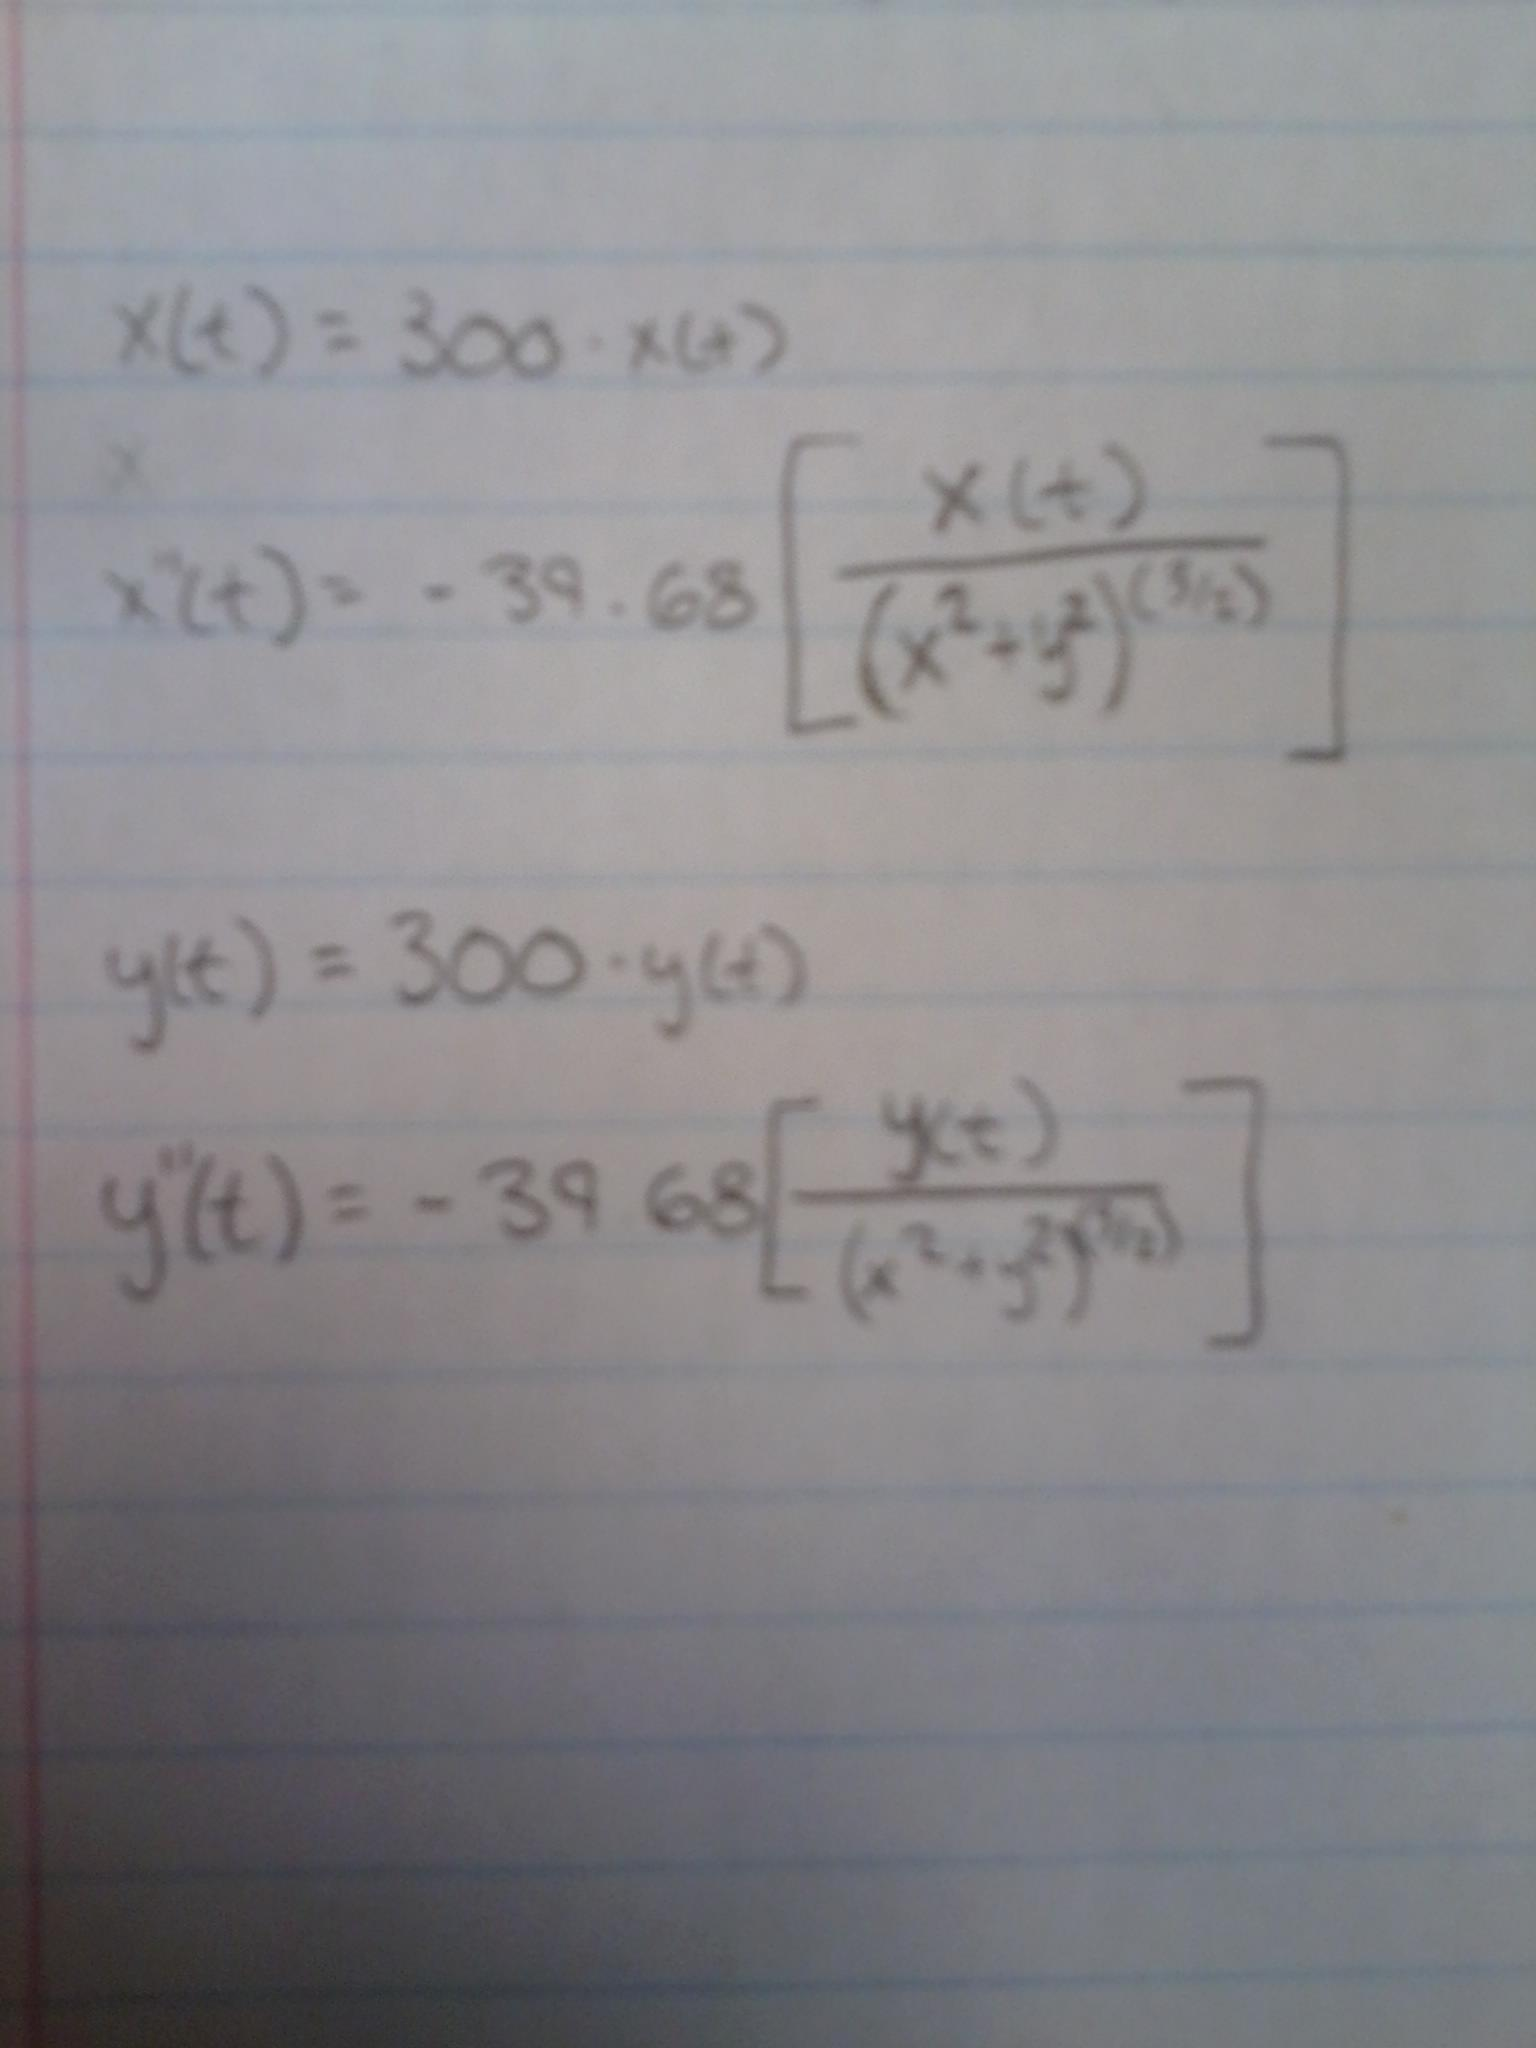 x(t) = 300 · x(t)
x
x"(t) = - 39.68 [ x(t) / (x² + y²)^(3/2) ]
y(t) = 300 · y(t)
y"(t) = - 39 68 [ y(t) / (x² + y²)^(3/2) ]